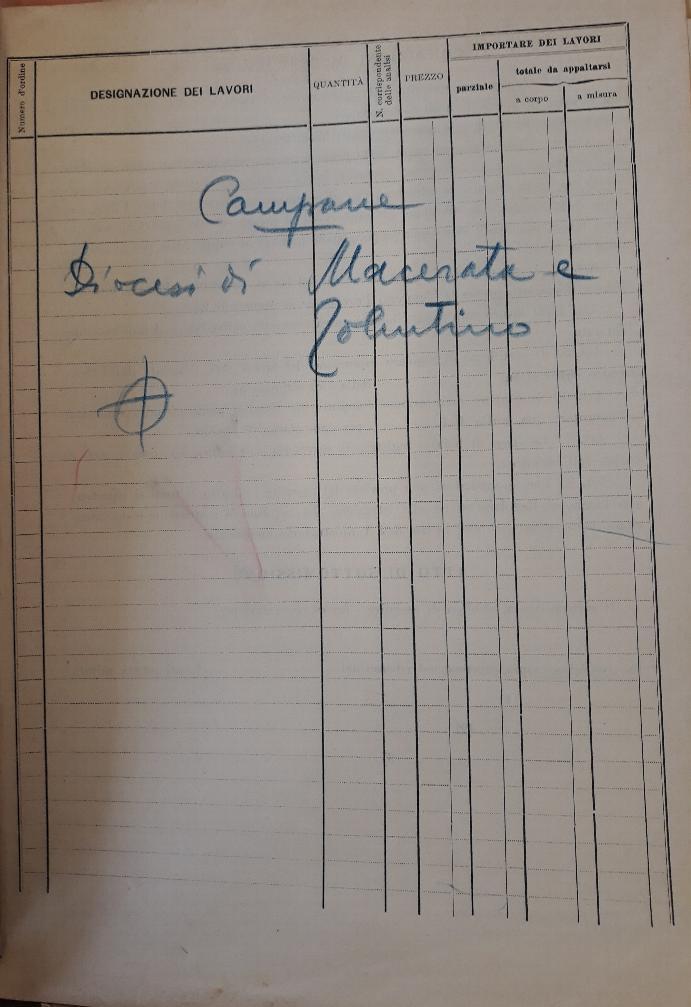 Numero d'ordine
DESIGNAZIONE DEI LAVORI
QUANTITÀ
N. corrispondente
delle analisi
PREZZO
IMPORTARE DEI LAVORI
parziale
totale da appaltarsi
a corpo
a misura
Campane
Diocesi di Macerata e
Tolentino